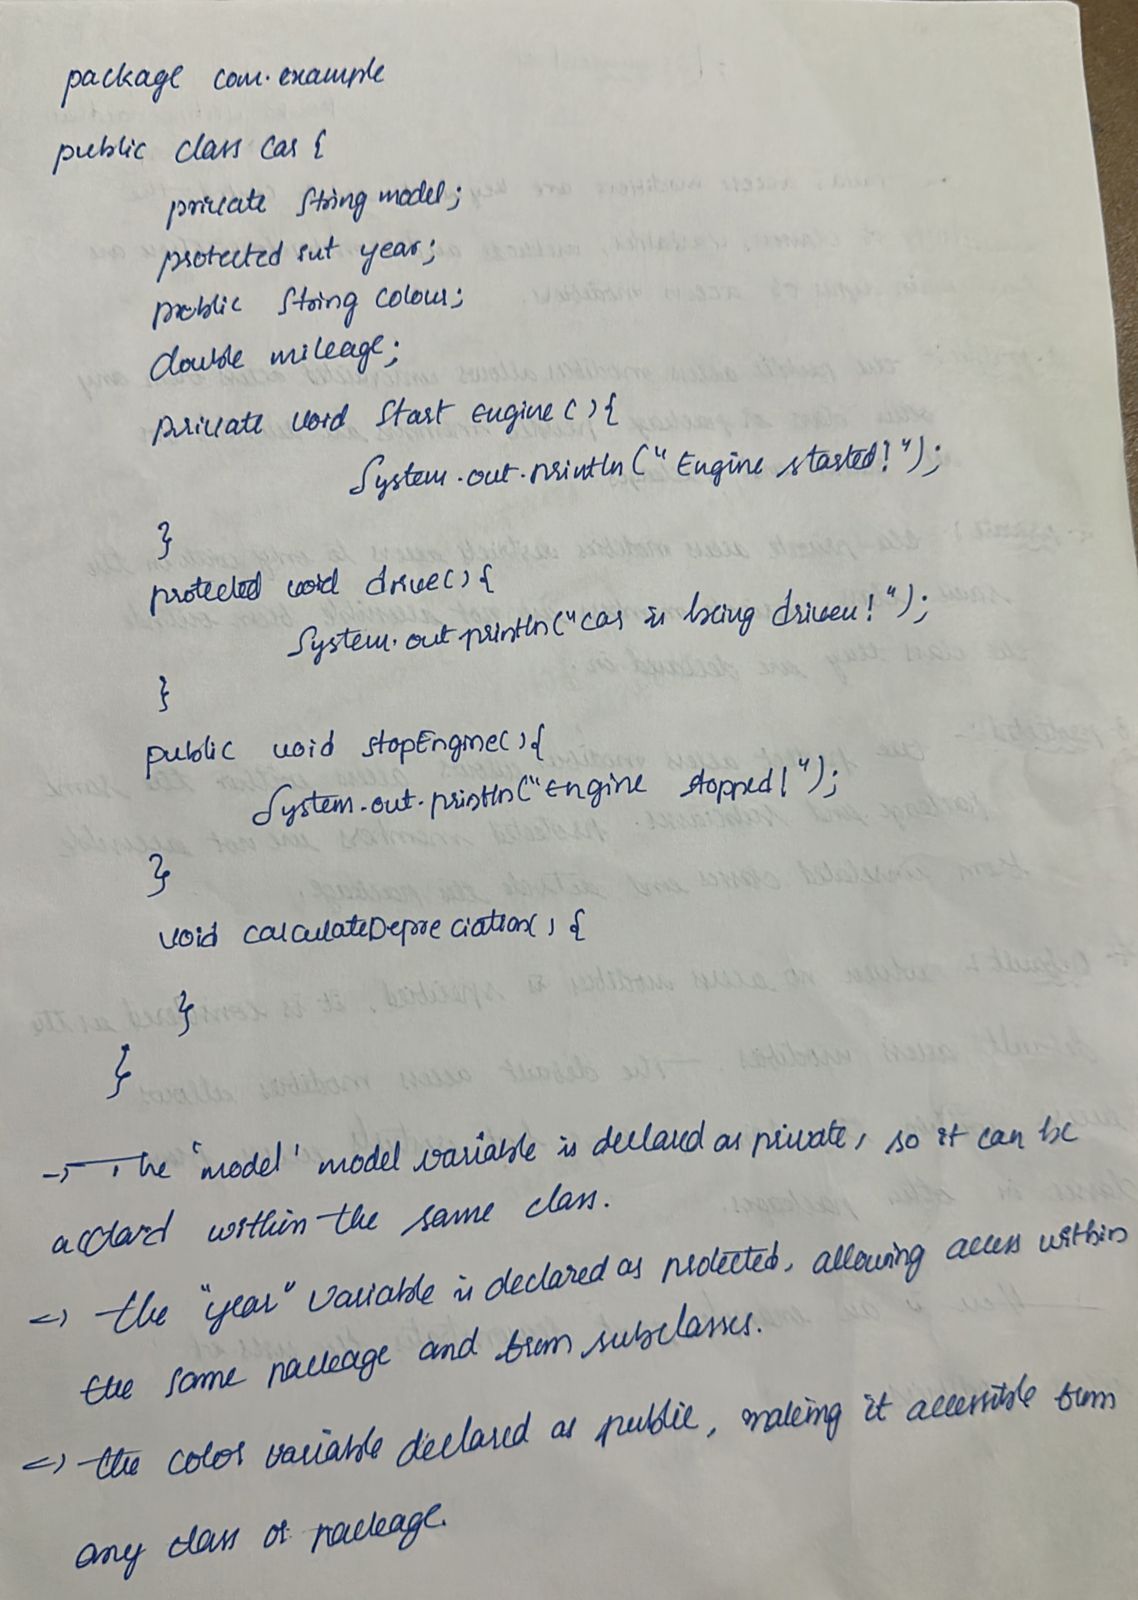 package com.example
public class Car {
private String model;
protected int year;
public String colour;
double mileage;
private void Start Engine () {
System.out.println ("Engine started!");
}
protected void drive() {
System.out.println("Car is being driven!");
}
public void stopEngine() {
System.out.println("Engine stopped!");
}
void calculateDepreciation() {
}
}
-> The 'model' model variable is declared as private, so it can be
within the same class.
=> the "year" variable is declared as protected, allowing access within
the same package and from subclasses.
=> the color variable declared as public, making it accessible from
any class or package.